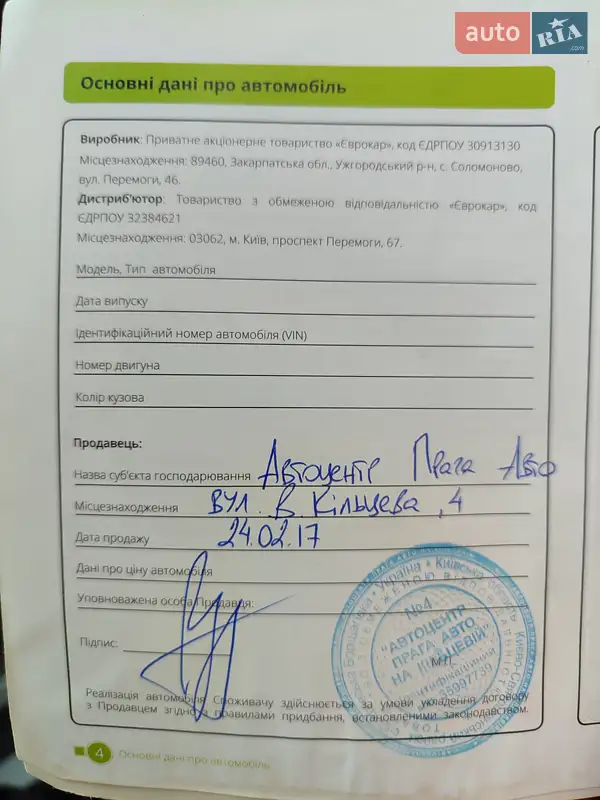 auto RIA .com
Основні дані про автомобіль
Виробник: Приватне акціонерне товариство «Єврокар», код ЄДРПОУ 30913130
Місцезнаходження: 89460, Закарпатська обл., Ужгородський р-н, с. Соломоново,
вул. Перемоги, 46.
Дистриб'ютор: Товариство з обмеженою відповідальністю «Єврокар», код
ЄДРПОУ 32384621
Місцезнаходження: 03062, м. Київ, проспект Перемоги, 67.
Модель, Тип автомобіля
Дата випуску
Ідентифікаційний номер автомобіля (VIN)
Номер двигуна
Колір кузова
Продавець:
Назва суб'єкта господарювання Автоцентр Прага Авто
Місцезнаходження вул. В. Кільцева, 4
Дата продажу 24.02.17
Дані про ціну автомобіля
Уповноважена особа Продавця:
Підпис:
М.П.
№4
"АВТОЦЕНТР
ПРАГА АВТО
НА КІЛЬЦЕВІЙ"
Україна • Київська
Реалізація автомобіля Споживачу здійснюється за умови укладення договору
з Продавцем згідно з правилами придбання, встановленими законодавством.
4 Основні дані про автомобіль